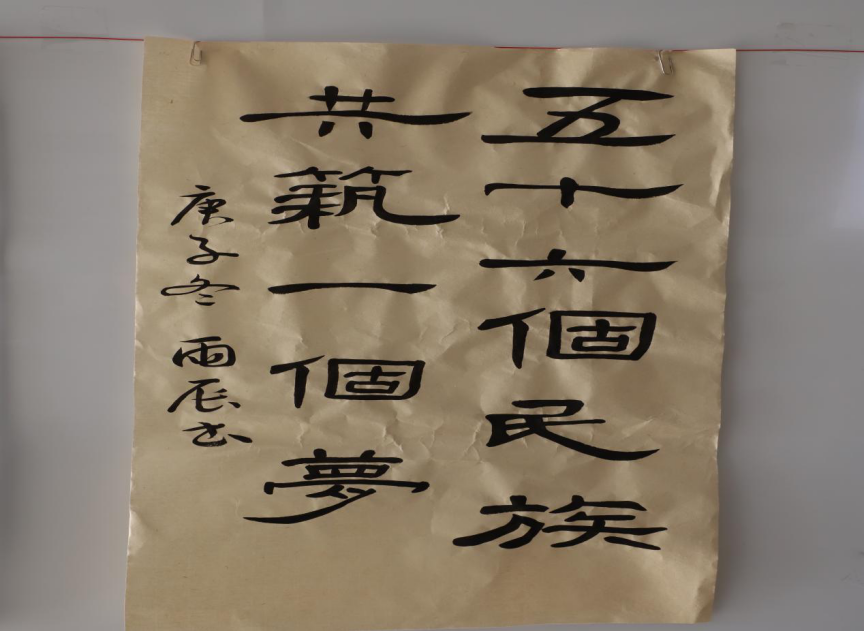 五十六個民族
共築一個夢
庚子冬 雨辰书